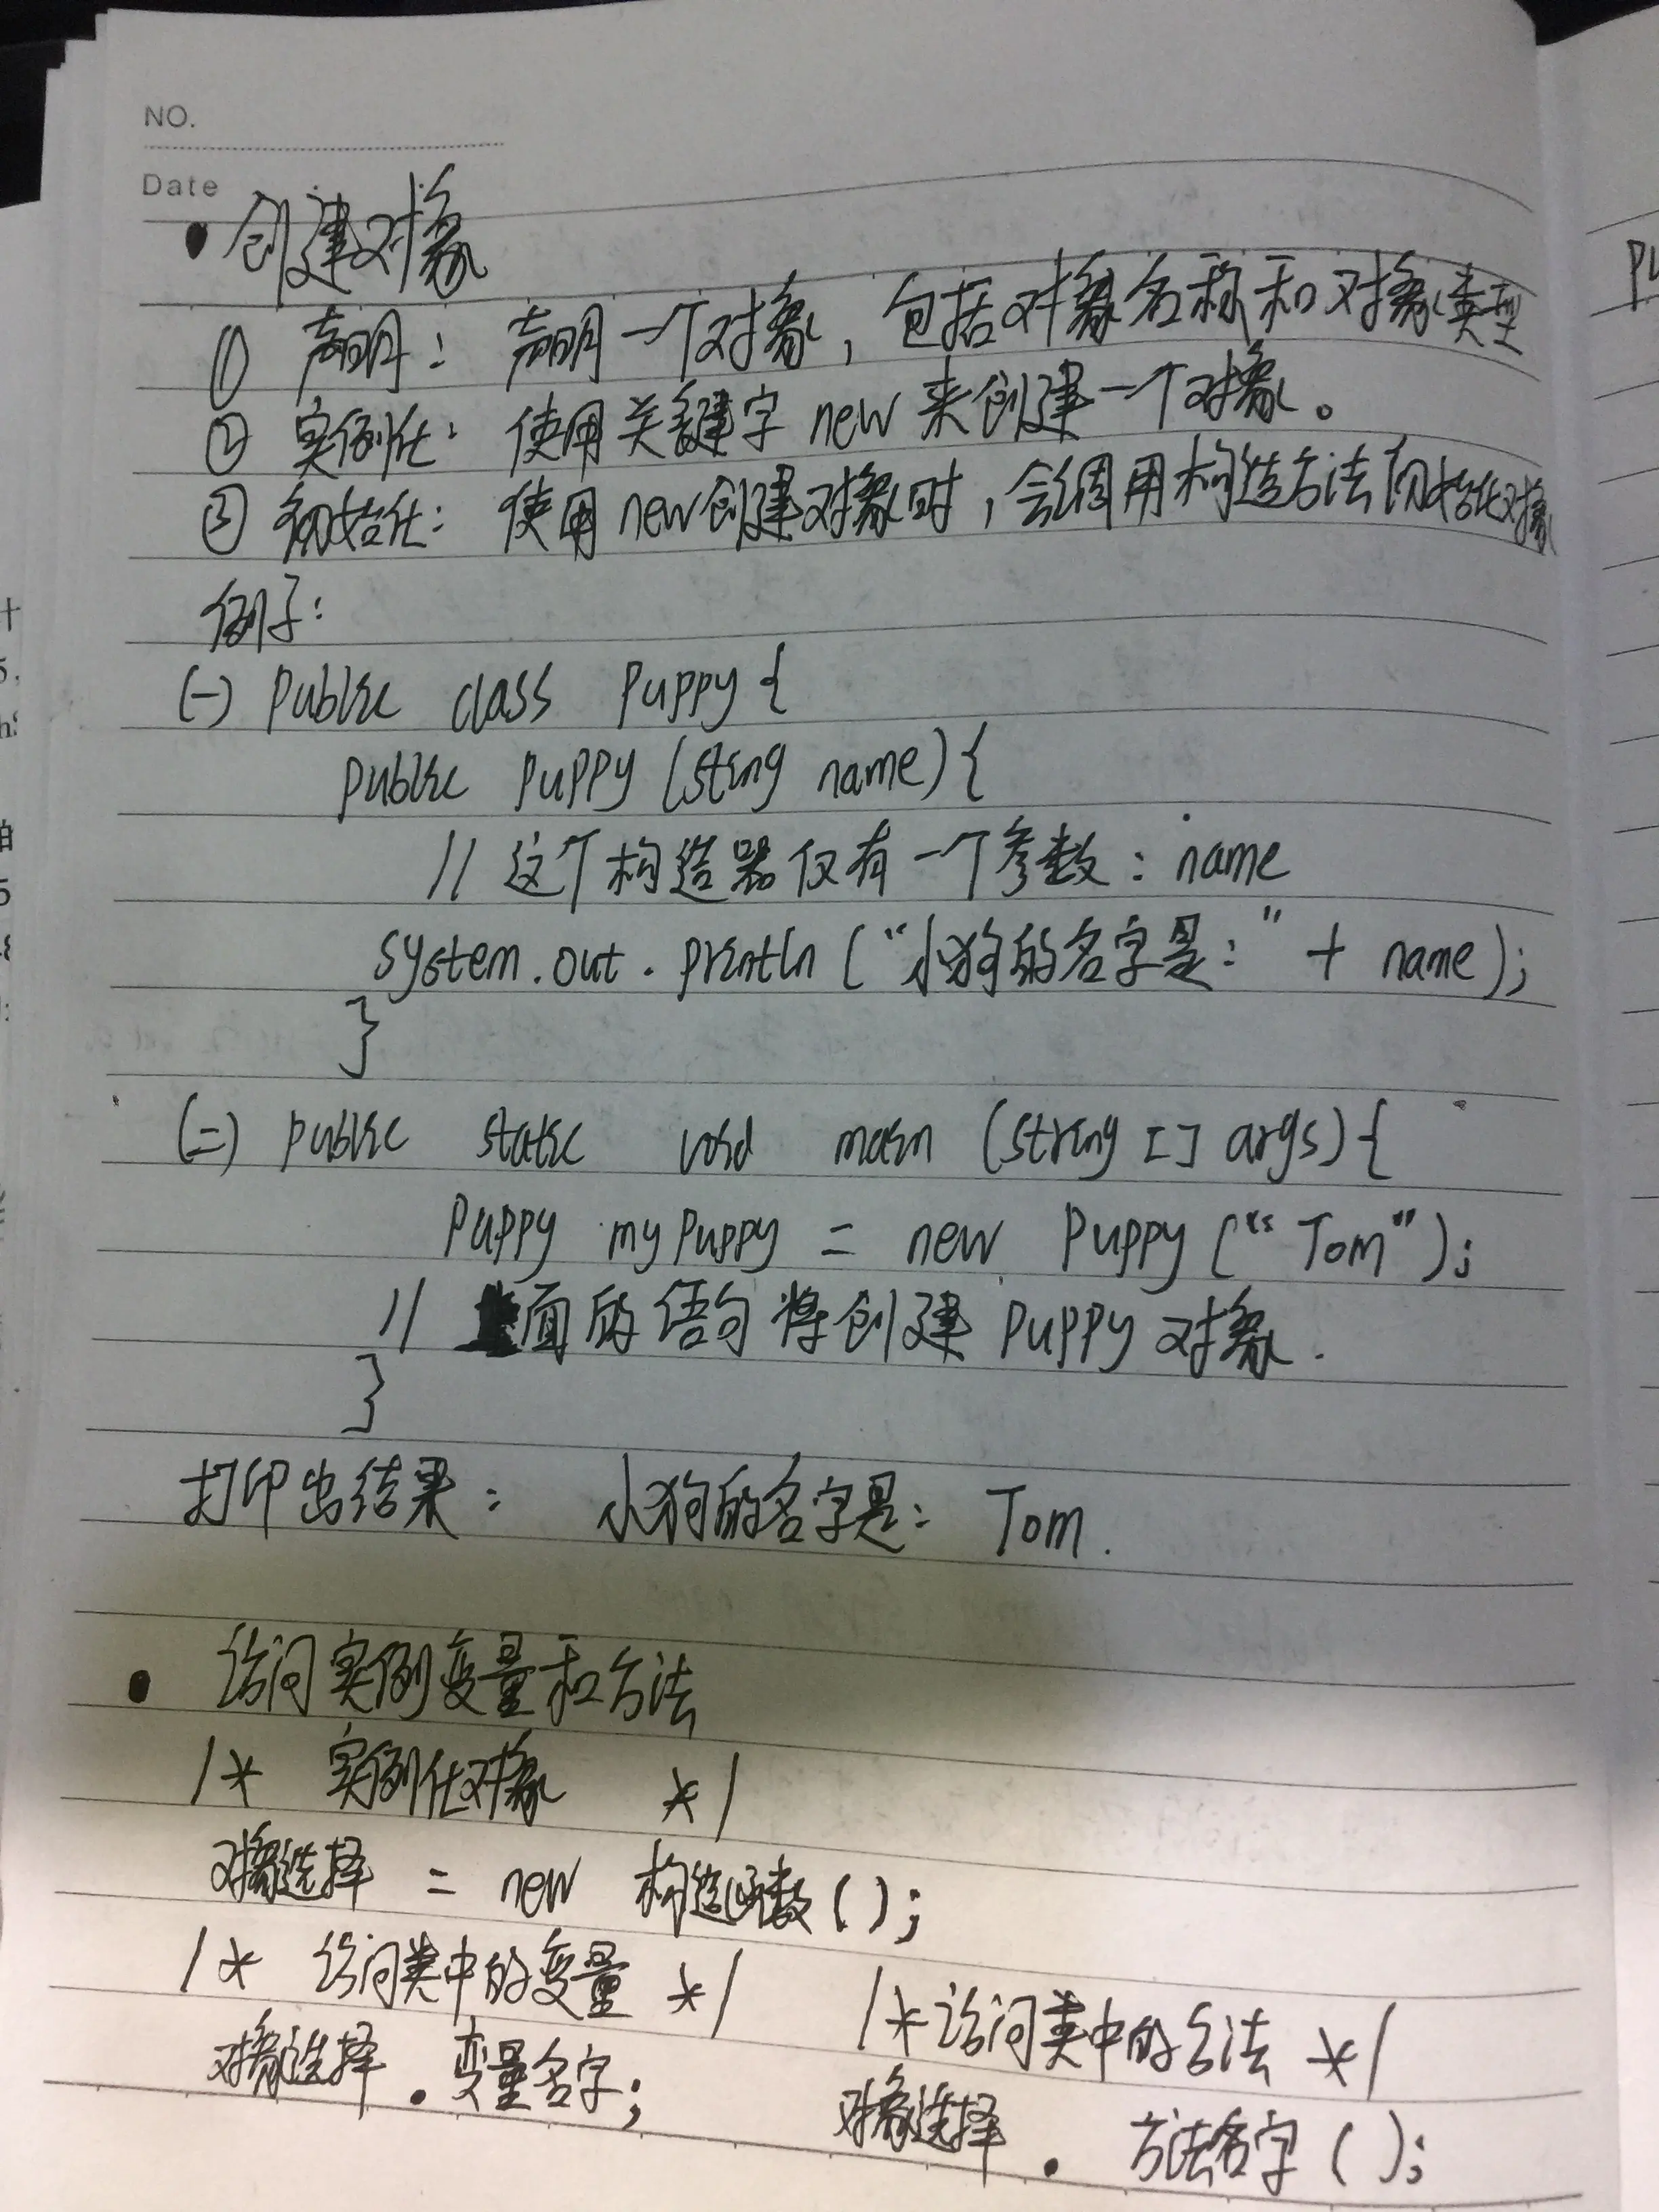 NO.
Date
• 创建对象
① 声明：声明一个对象，包括对象名称和对象类型
② 实例化：使用关键字 new 来创建一个对象。
③ 初始化：使用 new创建对象时，会调用构造方法初始化对象
例子：
(一) public class Puppy {
public Puppy (String name) {
// 这个构造器仅有一个参数：name
System.out.println ("小狗的名字是：" + name);
}
(二) public static void main (String [] args) {
Puppy myPuppy = new Puppy ("Tom");
// 上面的语句将创建 Puppy 对象.
}
打印出结果：小狗的名字是：Tom.
• 访问实例变量和方法
/* 实例化对象 */
对象选择 = new 构造函数 ( );
/* 访问类中的变量 */ /* 访问类中的方法 */
对象选择 . 变量名字; 对象选择 . 方法名字 ( );